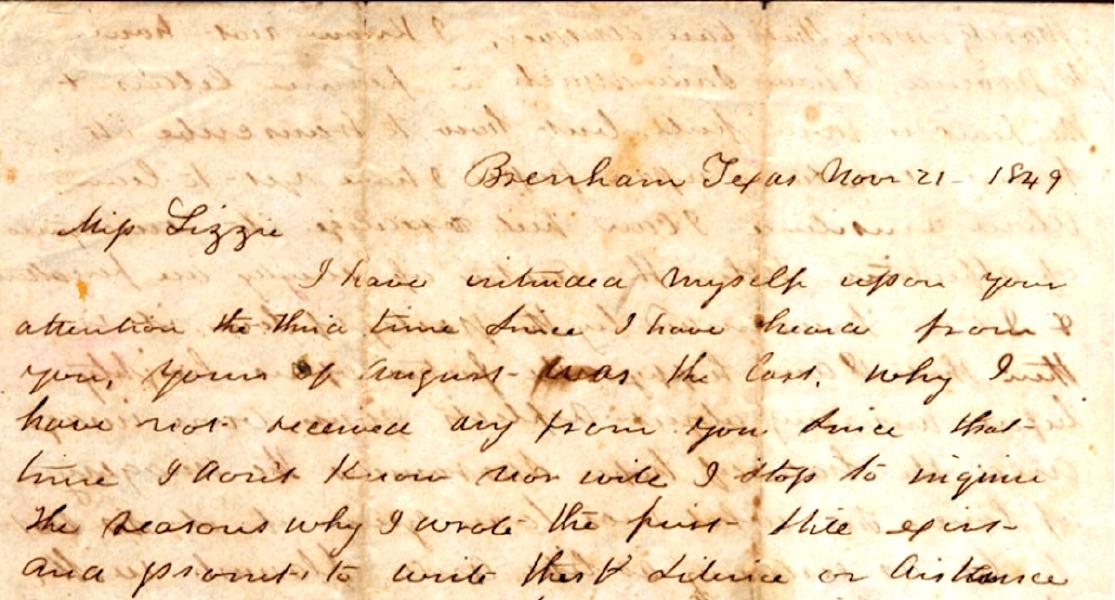 Brenham Texas Novr 21 - 1849
Miss Lizzie
I have intruded myself upon your
attention the third time since I have heard from
you, yours of August was the last. Why I
have not received any from you since that
time I don't Know nor will I stop to inquire
The reasons why I wrote the first still exist
and prompt to write this & silence or distance